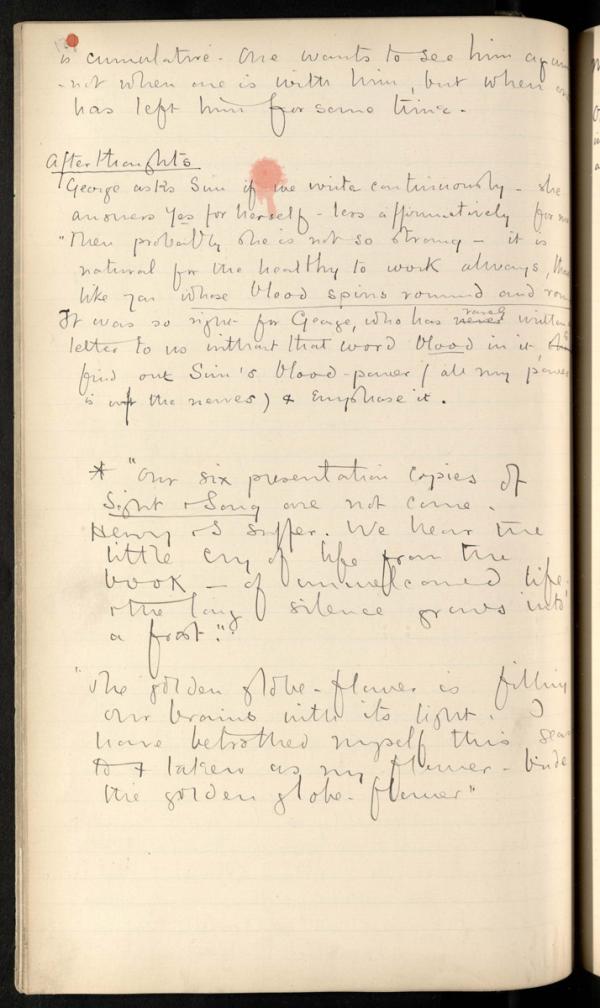 is cumulative. One wants to see him again
- not when one is with him, but when one
has left him for some time.
Afterthoughts
George asks Sim if we write continuously - she
answers Yes for herself - less affirmatively for me
"Then probably she is not so strong - it is
natural for the healthy to work always,
like you whose blood spins round and round
It was so right for George, who has never rarely written
letter to us without that word blood in it,
find out Sim's blood-power (all my power
is of the nerves) & emphase it.
* "Our six presentation copies of
Sight & Song are not come.
Henry & I suffer. We hear the
little cry of life from the
book - of unwelcomed life -
& the long silence grows into
a frost."
"The golden globe-flower is filling
our brains with its light. I
have betrothed myself this
to & taken as my flower - bride
the golden globe-flower"